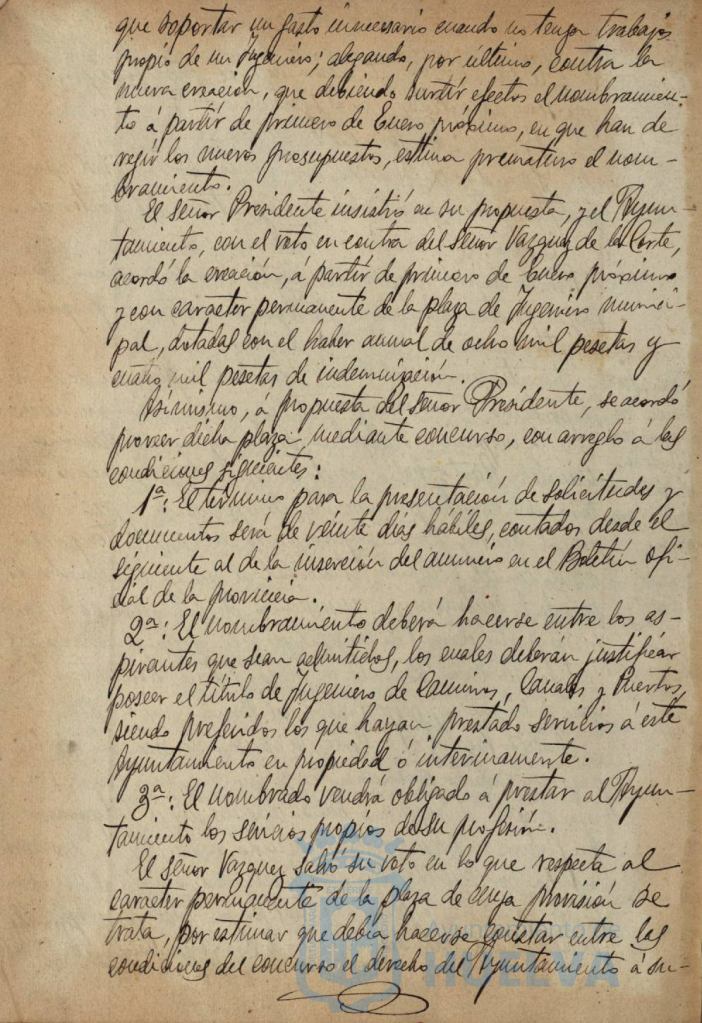 que soportar un gasto innecesario cuando no tenga trabajos
propio de un Ingeniero; alegando, por ultimo, contra la
nueva creación, que debiendo surtir efectos el nombramien-
to á partir de primero de Enero próximo, en que han de
regir los nuevos presupuestos, estima prematuro el nom-
bramiento.
El señor Presidente insistió en su propuesta, y el Ayun-
tamiento, con el voto en contra del señor Vazquez de la Corte,
acordó la creación, á partir de primero de Enero próximo
y con caracter permanente de la plaza de Ingeniero munici-
pal, dotadas con el haber anual de ocho mil pesetas y
cuatro mil pesetas de indemnización.
Asimismo, á propuesta del señor Presidente, se acordó
proveer dicha plaza mediante concurso, con arreglo á las
condiciones siguientes:
1ª: El termino para la presentación de solicitudes y
documentos será de veinte dias hábiles, contados desde el
siguiente al de la inserción del anuncio en el Boletín ofi-
cial de la provincia.
2ª: El nombramiento deberá hacerse entre los as-
pirantes que sean admitidos, los cuales deberán justificar
poseer el título de Ingeniero de Caminos, Canales y Puertos,
siendo preferidos los que hayan prestado servicios á este
Ayuntamiento en propiedad ó interinamente.
3ª: El nombrado vendrá obligado á prestar al Ayun-
tamiento los servicios propios de su profesión.
El señor Vazquez salvó su voto en lo que respecta al
caracter permanente de la plaza de cuya provisión se
trata, por estimar que debía hacerse constar entre las
condiciones del concurso el derecho del Ayuntamiento á su-
HUELVA